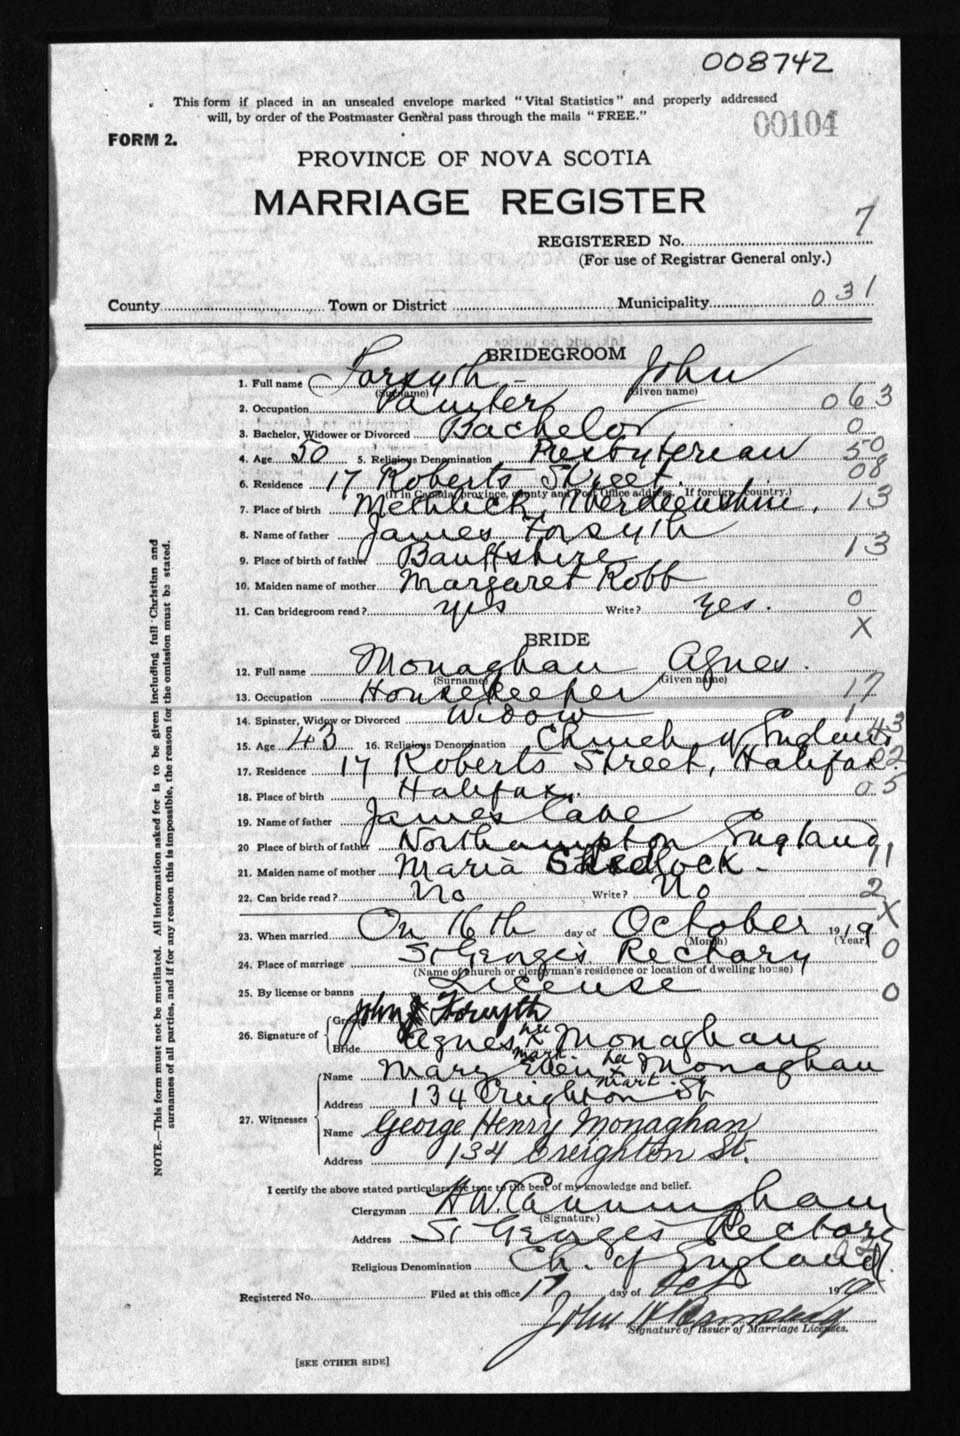 008742
This form if placed in an unsealed envelope marked "Vital Statistics" and properly addressed
will, by order of the Postmaster General pass through the mails "FREE."
00104
FORM 2.
PROVINCE OF NOVA SCOTIA
MARRIAGE REGISTER
REGISTERED No. 7
(For use of Registrar General only.)
County Town or District Municipality 031
BRIDEGROOM
1. Full name Forsyth - John
(Surname) (Given name)
2. Occupation Painter 063
3. Bachelor, Widower or Divorced Bachelor 0
4. Age 50 5. Religious Denomination Presbyterian 50
6. Residence 17 Roberts Street. 08
(If in Canada, province, county and Post Office address. If foreign, country.)
7. Place of birth Methlick, Aberdeenshire. 13
8. Name of father James Forsyth
9. Place of birth of father Banffshire 13
10. Maiden name of mother Margaret Robb
11. Can bridegroom read? yes Write? Yes. 0
X
BRIDE
12. Full name Monaghan Agnes.
(Surname) (Given name)
13. Occupation Housekeeper 17
14. Spinster, Widow or Divorced Widow 1
15. Age 43 16. Religious Denomination Church of England 43
17. Residence 17 Roberts Street, Halifax. 02
18. Place of birth Halifax. 05
19. Name of father James Cabe
20 Place of birth of father Northampton England
21. Maiden name of mother Maria Shedlock - 11
22. Can bride read? No Write? No 2
X
23. When married On 16th day of October 1919
(Month) (Year)
24. Place of marriage St George's Rectory 0
(Name of church or clergyman's residence or location of dwelling house)
25. By license or banns License 0
26. Signature of Groom John Forsyth
Bride Agnes her X mark Monaghan
27. Witnesses Name Mary Ellen her X mark Monaghan
Address 134 Creighton St
Name George Henry Monaghan
Address 134 Creighton St.
I certify the above stated particulars are true to the best of my knowledge and belief.
Clergyman H W. Cunningham
(Signature)
Address St George's Rectory
Religious Denomination Ch. of England
Registered No. Filed at this office 17 day of Oct 1919
John
Signature of Issuer of Marriage Licenses.
[SEE OTHER SIDE]
NOTE.—This form must not be mutilated. All information asked for is to be given including full Christian and
surnames of all parties, and if for any reason this is impossible, the reason for the omission must be stated.